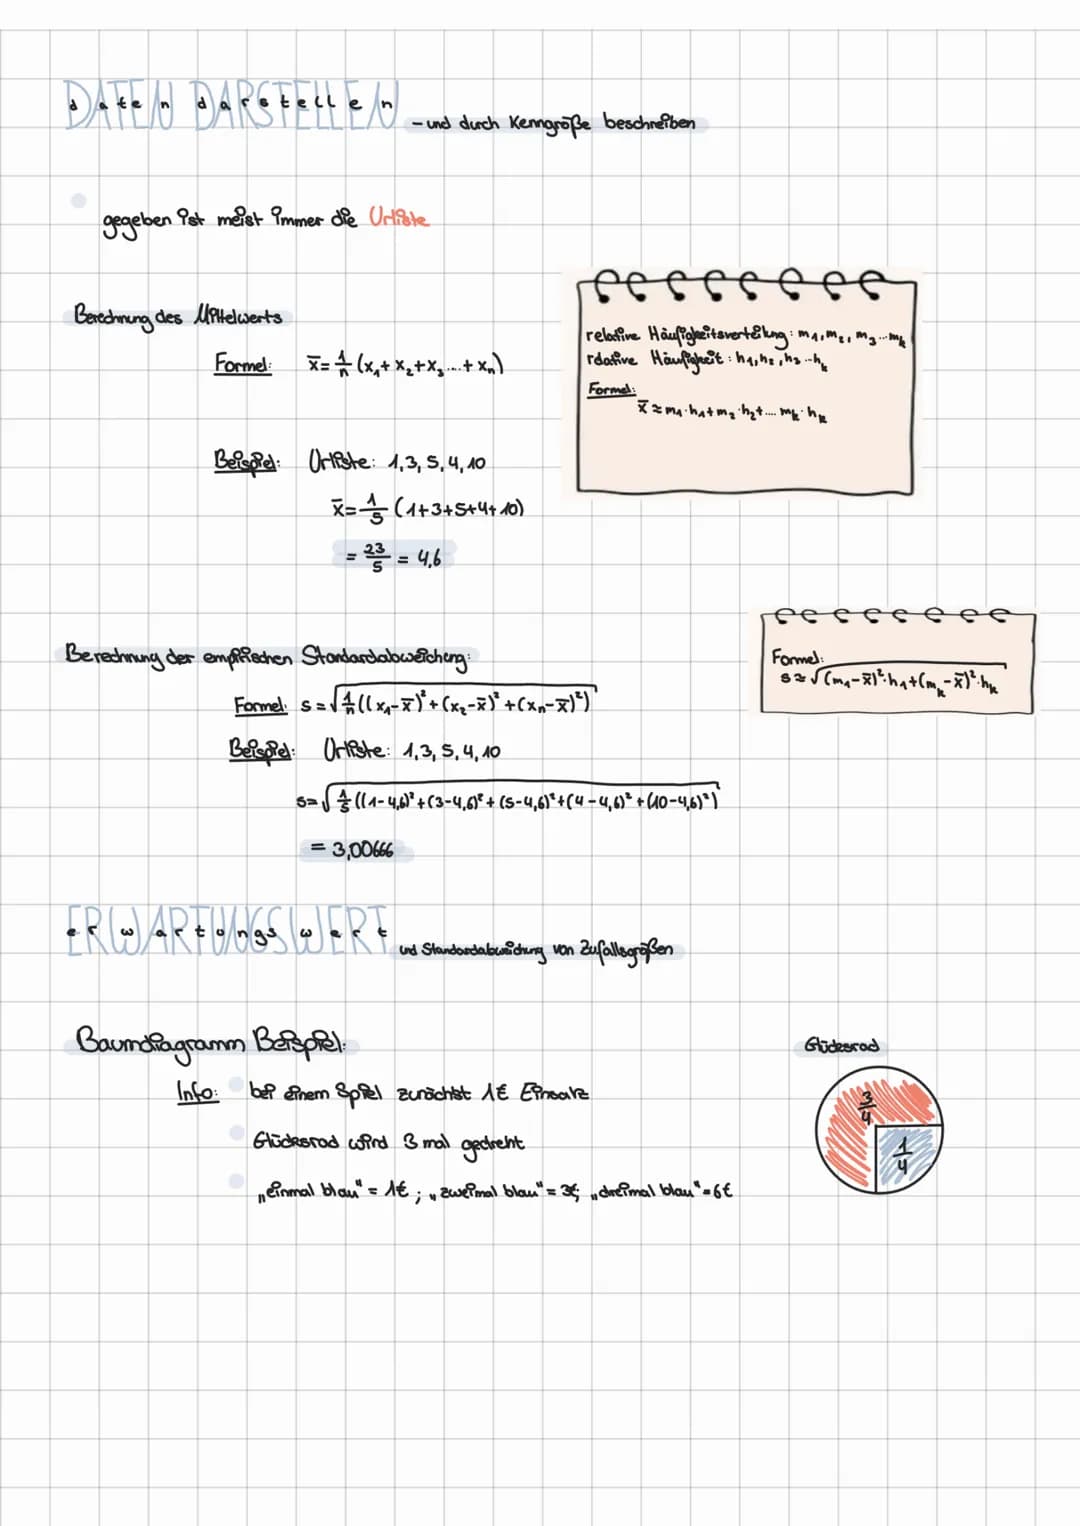 DATEN DARSTELLEN
daten darstellen
- und durch Kenngröße beschreiben
gegeben ist meist immer die Urliste
Berechnung des Mittelwerts
Formel: x̄ = 1/n (x₁ + x₂ + x₃ .... + xₙ)
Beispiel: Urliste: 1, 3, 5, 4, 10
x̄ = 1/5 (1+3+5+4+10)
= 23/5 = 4,6
relative Häufigkeitsverteilung: m₁, m₂, m₃ ... mₖ
relative Häufigkeit: h₁, h₂, h₃ ... hₖ
Formel:
x̄ ≈ m₁·h₁ + m₂·h₂ + .... mₖ·hₖ
Berechnung der empirischen Standardabweichung:
Formel: s = √1/n ((x₁-x̄)² + (x₂-x̄)² + (xₙ-x̄)²)
Beispiel: Urliste: 1, 3, 5, 4, 10
s = √1/5 ((1-4,6)² + (3-4,6)² + (5-4,6)² + (4-4,6)² + (10-4,6)²)
= 3,00666
Formel:
s ≈ √(m₁-x̄)²·h₁ + (mₖ-x̄)²·hₖ
ERWARTUNGSWERT
erwartungswert
und Standardabweichung von Zufallsgrößen
Baumdiagramm Beispiel:
Info: bei einem Spiel zunächst 1€ Einsatz
Glücksrad wird 3 mal gedreht
„einmal blau" = 1€ ; „zweimal blau" = 3€; „dreimal blau" = 6€
Glücksrad
3/4
1/4